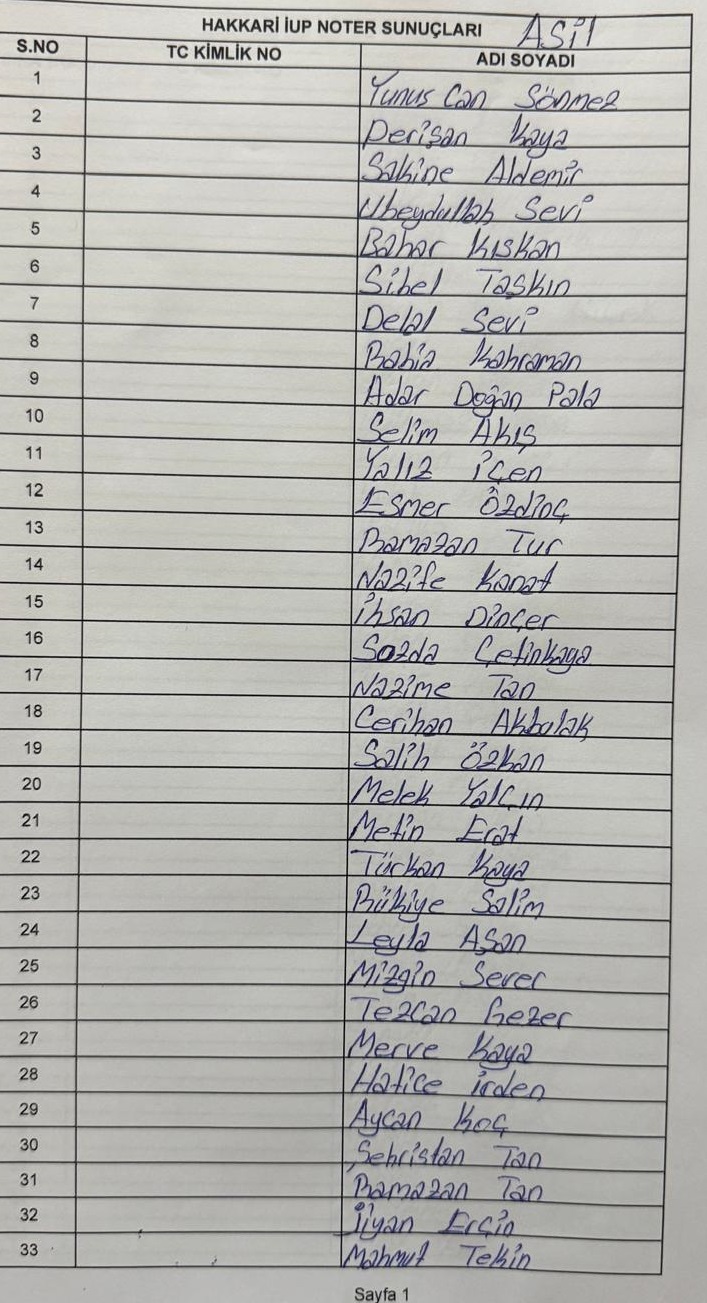 HAKKARİ İUP NOTER SUNUÇLARI ASİl
S.NO TC KİMLİK NO ADI SOYADI
1 Yunus Can Sönmez
2 Perişan Kaya
3 Sakine Aldemir
4 Ubeydullah Sevi
5 Bahar Kışkan
6 Sibel Taşkın
7 Delal Sevi
8 Rabia Kahraman
9 Adar Doğan Pala
10 Selim Akış
11 Yalız İçen
12 Esmer Özdinç
13 Ramazan Tur
14 Nazife Kanat
15 İhsan Dinçer
16 Sozda Çetinkaya
17 Nazime Tan
18 Cerihan Akbalak
19 Salih Özkan
20 Melek Yalçın
21 Metin Erat
22 Türkan Kaya
23 Rükiye Salim
24 Leyla Aşan
25 Mizgin Sever
26 Tezcan Gezer
27 Merve Kaya
28 Hatice İrden
29 Aycan Koç
30 Şehristan Tan
31 Ramazan Tan
32 İlyan Erçin
33 Mahmut Tekin
Sayfa 1